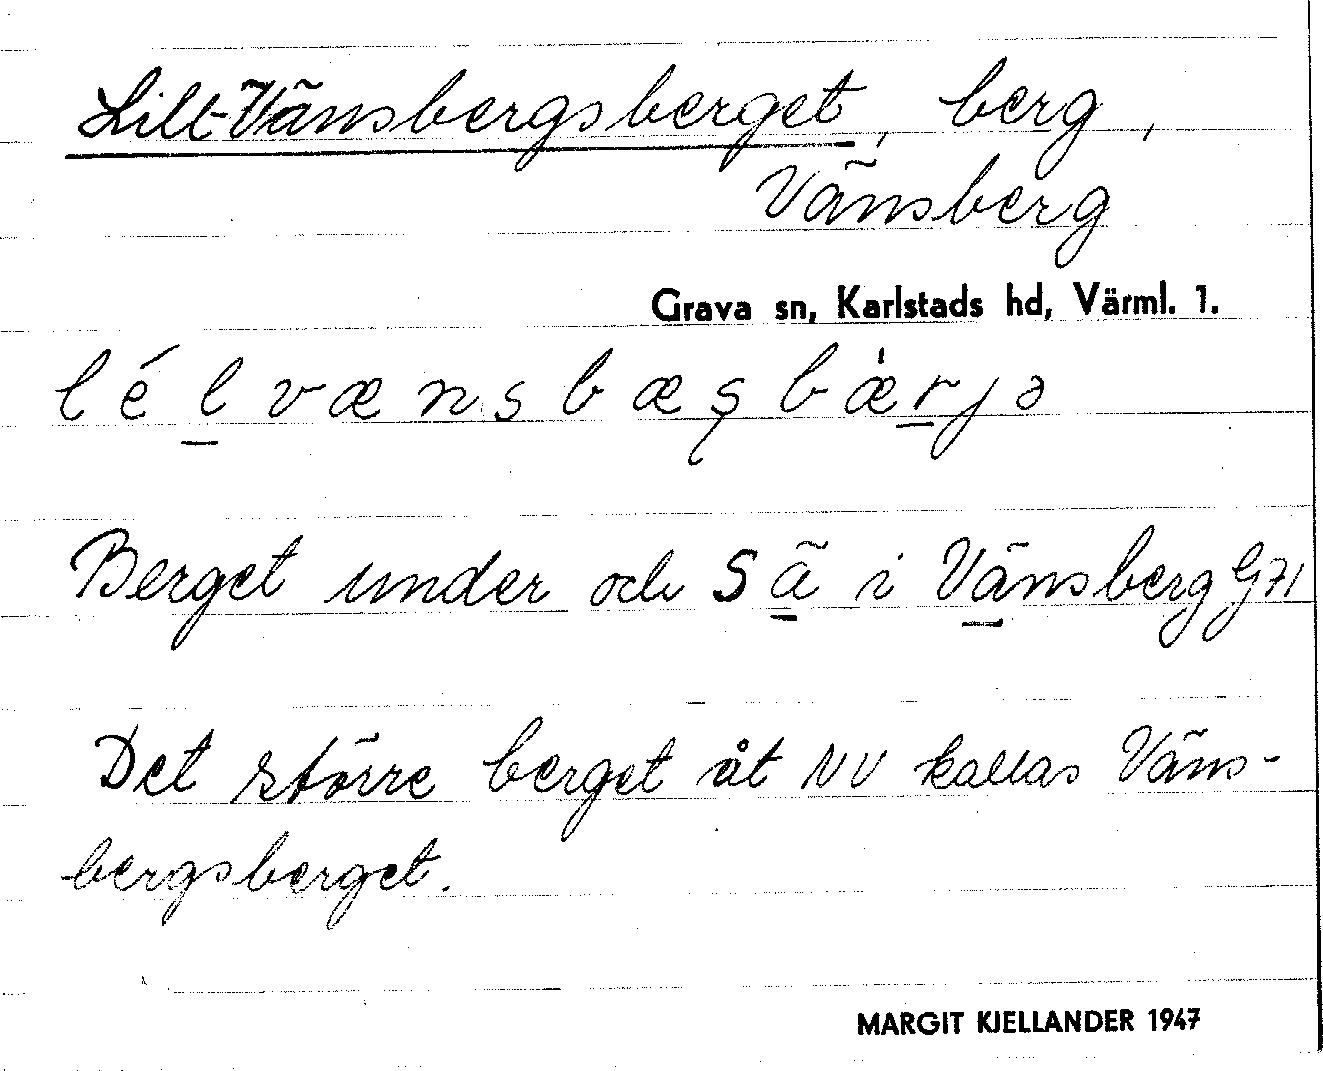 Lill-Vänsbergsberget, berg,
Vänsberg
Grava sn, Karlstads hd, Värml. 1.
lél vænsbæșbærjə
Berget under och S ä i Vänsberg G71
Det större berget åt NV kallas Väns-
bergsberget.
MARGIT KJELLANDER 1947